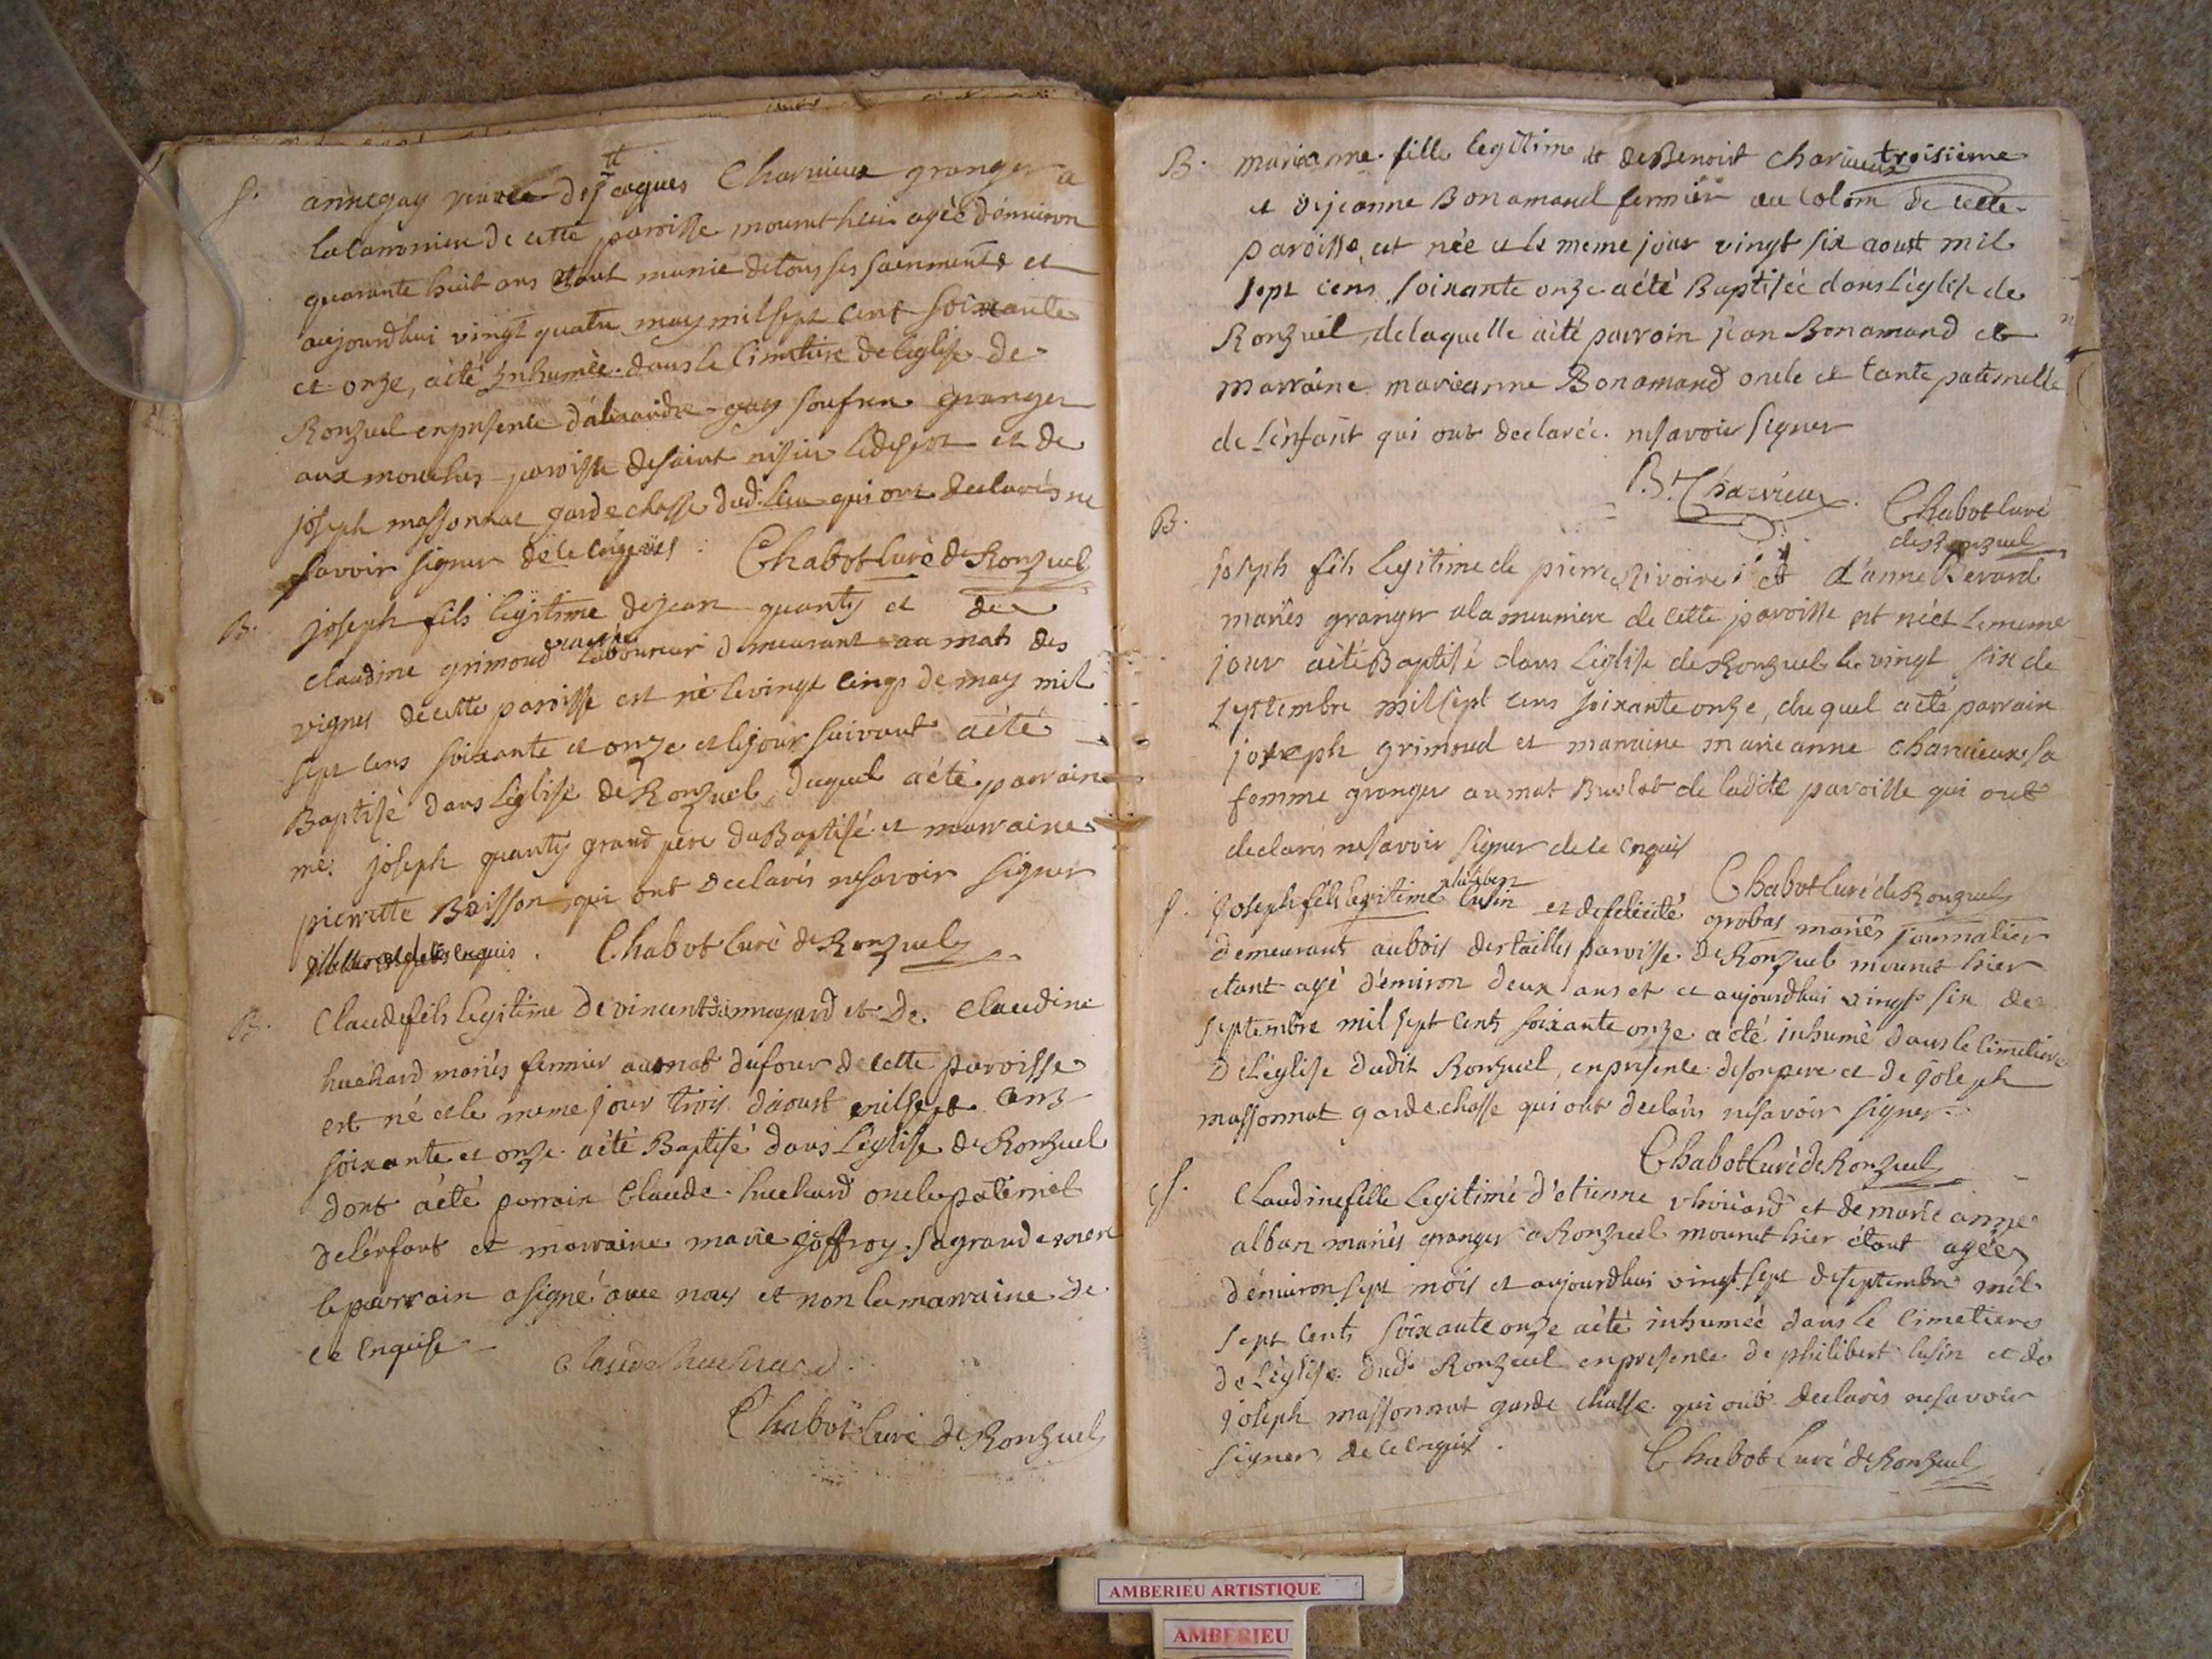 S. anne gay veuve de jacques Charvieux granger a
la Carronniere de cette paroisse mourut hier agèe d'environ
quarante huit ans étant munie de tous ses sacrements et
aujourd'hui vingt quatre may mil sept cent soixante
et onze, a èté inhumèe dans le Cimetiere de l'eglise de
Ronzuel en presence d'alexandre gay
paroisse de saint nisier le desert et de
joseph massonnat garde chasse dud. lieu qui ont declarés ne
savoir signer de ce enquis : Chabot Curè de Ronzuel
B. joseph fils legitime de jean quanty et de
claudine grimoud mariés Laboureur demeurant au mats des
vignes de cette paroisse est nè le vingt cinq de may mil
sept cens soixante et onze et le jour suivant a èté
Baptisè dans l'eglise de Ronzuel, duquel a èté parrain
me. joseph quanty grand pere du Baptisé et marraine
pierrette Boisson, qui ont declarés ne savoir signer
enquis. Chabot Curè de Ronzuel
B. Claude fils legitime de vincent et de Claudine
huchard mariés fermier au mat du four de cette paroisse
est né et le meme jour trois d'aoust mil sept cens
soixante et onze a èté Baptisé dans l'eglise de Ronzuel
dont a èté parrain Claude huchard oncle paternel
de l'enfant et marraine marie joffroy sa grande mere
le parrain a signé avec nous et non la marraine de
ce enquise
claude huchard
Chabot Curé de Ronzuel
B. marieanne fille legitime de Benoist charvieux troisieme
et de jeanne Bonamand fermier au Colom de cette
paroisse, est née et le meme jour vingt six aoust mil
sept cens soixante onze a èté Baptisée dans l'eglise de
Ronzuel, de laquelle a èté parrain jean Bonamand et
marraine marieanne Bonamand oncle et tante paternelle
de l'enfant qui ont declarée ne savoir signer
B. Charvieux. Chabot Curé
de Ronzuel
B. joseph fils legitime de pierre Rivoire et d'anne Bevard
mariés granger a la meuniere de cette paroisse est né et le meme
jour a èté Baptisé dans l'eglise de Ronzuel le vingt six de
septembre mil sept cens soixante onze, duquel a èté parrain
joseph grimoud et marraine marieanne charvieux sa
femme granger au mat Burlat de ladite paroisse qui ont
declarés ne savoir signer de ce enquis
Chabot Curé de Ronzuel
S. joseph fils legitime philibert lusin et de felicité grobas mariés journalier
demeurant au bois des tailles paroisse de Ronzuel mourut hier
etant agé d'environ deux ans et et aujourdhui vingt six de
septembre mil sept cents soixante onze a èté inhumé dans le cimetiere
de l'èglise dudit Ronzuel, en presence de son pere et de joseph
massonnat garde chasse qui ont declarés ne savoir signer.
Chabot Curé de Ronzuel
S. Claudine fille legitime d'etienne et de marie anne
alban mariés granger a Ronzuel mourut hier étant agée
d'environ sept mois et aujourdhui vingt sept de septembre mil
sept cents soixante onze a èté inhumée dans le Cimetiere
de l'èglise dud. Ronzuel en presence de philibert lusin et de
joseph massonnat garde chasse qui ont declarés ne savoir
signer de ce enquis.
Chabot Curé de Ronzuel
AMBERIEU ARTISTIQUE
AMBERIEU